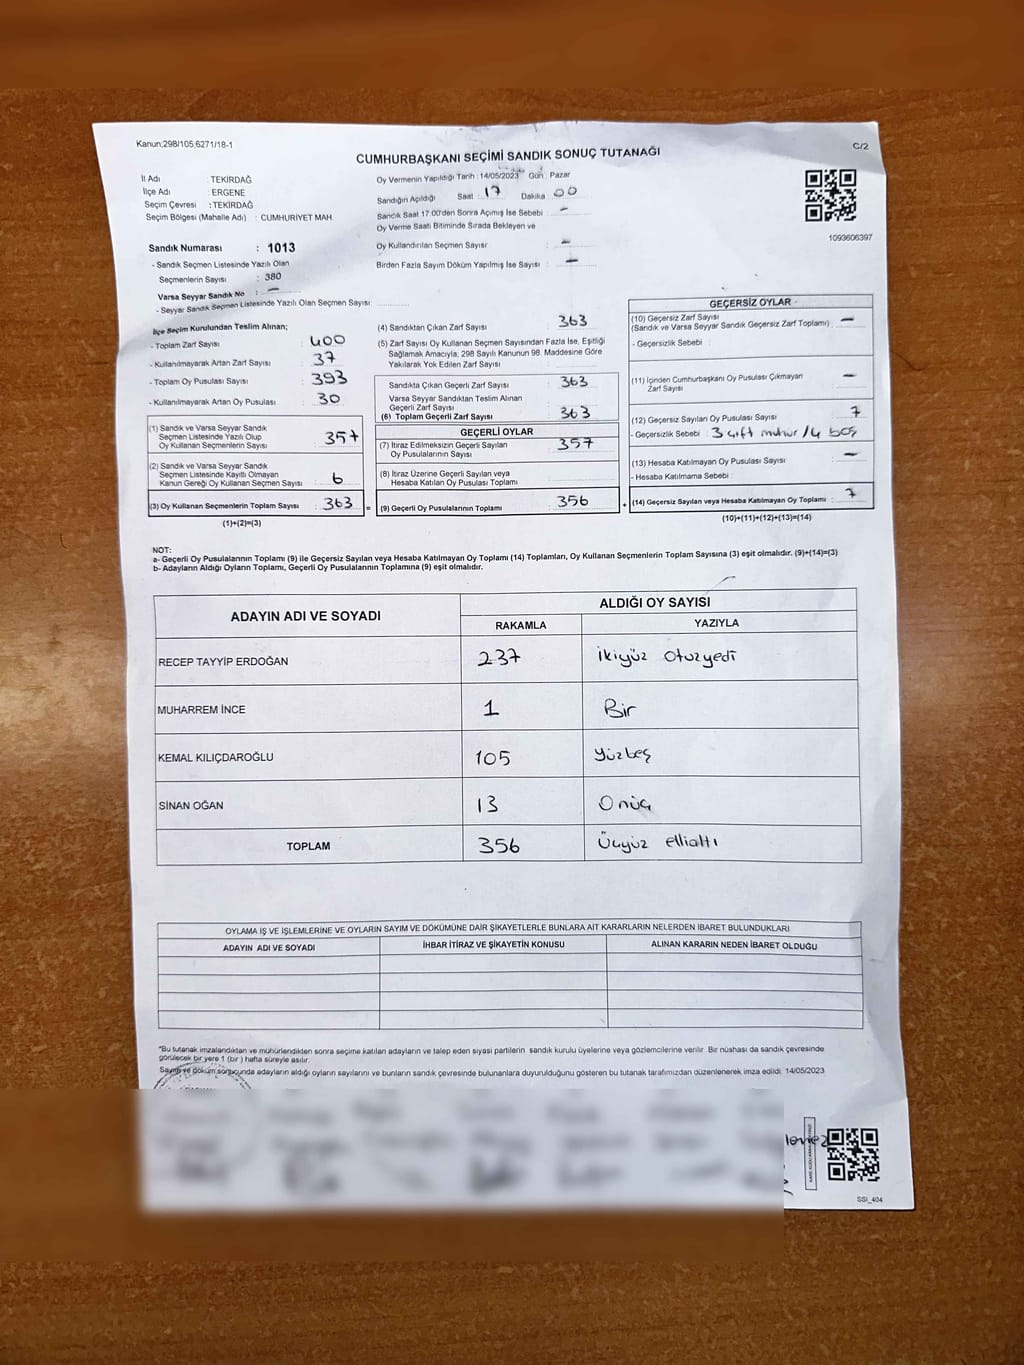 Kanun;298/105,6271/18-1
C/2
CUMHURBAŞKANI SEÇİMİ SANDIK SONUÇ TUTANAĞI
İl Adı : TEKİRDAĞ
İlçe Adı : ERGENE
Seçim Çevresi : TEKİRDAĞ
Seçim Bölgesi (Mahalle Adı) : CUMHURIYET MAH.
Sandık Numarası : 1013
- Sandık Seçmen Listesinde Yazılı Olan
Seçmenlerin Sayısı : 380
Varsa Seyyar Sandık No : —
- Seyyar Sandık Seçmen Listesinde Yazılı Olan Seçmen Sayısı:
Oy Vermenin Yapıldığı Tarih : 14/05/2023 Gün : Pazar
Sandığın Açıldığı Saat : 17 Dakika : 00
Sandık Saat 17:00'den Sonra Açımış İse Sebebi : —
Oy Verme Saati Bitiminde Sırada Bekleyen ve
Oy Kullandırılan Seçmen Sayısı : —
Birden Fazla Sayım Döküm Yapılmış İse Sayısı : —
1093606397
İlçe Seçim Kurulundan Teslim Alınan;
- Toplam Zarf Sayısı : 400
- Kullanılmayarak Artan Zarf Sayısı : 37
- Toplam Oy Pusulası Sayısı : 393
- Kullanılmayarak Artan Oy Pusulası : 30
(1) Sandık ve Varsa Seyyar Sandık
Seçmen Listesinde Yazılı Olup
Oy Kullanan Seçmenlerin Sayısı : 357
(2) Sandık ve Varsa Seyyar Sandık
Seçmen Listesinde Kayıtlı Olmayan
Kanun Gereği Oy Kullanan Seçmen Sayısı : 6
(3) Oy Kullanan Seçmenlerin Toplam Sayısı : 363
(1)+(2)=(3)
(4) Sandıktan Çıkan Zarf Sayısı : 363
(5) Zarf Sayısı Oy Kullanan Seçmen Sayısından Fazla İse, Eşitliği
Sağlamak Amacıyla; 298 Sayılı Kanunun 98. Maddesine Göre
Yakılarak Yok Edilen Zarf Sayısı :
Sandıkta Çıkan Geçerli Zarf Sayısı : 363
Varsa Seyyar Sandıktan Teslim Alınan
Geçerli Zarf Sayısı :
(6) Toplam Geçerli Zarf Sayısı : 363
GEÇERLİ OYLAR
(7) İtiraz Edilmeksizin Geçerli Sayılan
Oy Pusulalarının Sayısı : 357
(8) İtiraz Üzerine Geçerli Sayılan veya
Hesaba Katılan Oy Pusulası Toplamı :
= (9) Geçerli Oy Pusulalarının Toplamı : 356
GEÇERSİZ OYLAR
(10) Geçersiz Zarf Sayısı
(Sandık ve Varsa Seyyar Sandık Geçersiz Zarf Toplamı) : —
- Geçersizlik Sebebi :
(11) İçinden Cumhurbaşkanı Oy Pusulası Çıkmayan
Zarf Sayısı : —
(12) Geçersiz Sayılan Oy Pusulası Sayısı : 7
- Geçersizlik Sebebi : 3 çift mühür / 4 boş
(13) Hesaba Katılmayan Oy Pusulası Sayısı : —
- Hesaba Katılmama Sebebi :
+ (14) Geçersiz Sayılan veya Hesaba Katılmayan Oy Toplamı : 7
(10)+(11)+(12)+(13)=(14)
NOT:
a- Geçerli Oy Pusulalarının Toplamı (9) ile Geçersiz Sayılan veya Hesaba Katılmayan Oy Toplamı (14) Toplamları, Oy Kullanan Seçmenlerin Toplam Sayısına (3) eşit olmalıdır. (9)+(14)=(3)
b- Adayların Aldığı Oyların Toplamı, Geçerli Oy Pusulalarının Toplamına (9) eşit olmalıdır.
ADAYIN ADI VE SOYADI
ALDIĞI OY SAYISI
RAKAMLA YAZIYLA
RECEP TAYYİP ERDOĞAN 237 İkiyüz otuzyedi
MUHARREM İNCE 1 Bir
KEMAL KILIÇDAROĞLU 105 Yüzbeş
SİNAN OĞAN 13 Onüç
TOPLAM 356 Üçyüz ellialtı
OYLAMA İŞ VE İŞLEMLERİNE VE OYLARIN SAYIM VE DÖKÜMÜNE DAİR ŞİKAYETLERLE BUNLARA AİT KARARLARIN NELERDEN İBARET BULUNDUKLARI
ADAYIN ADI VE SOYADI İHBAR İTİRAZ VE ŞİKAYETİN KONUSU ALINAN KARARIN NEDEN İBARET OLDUĞU
*Bu tutanak imzalandıktan ve mühürlendikten sonra seçime katılan adayların ve talep eden siyasi partilerin sandık kurulu üyelerine veya gözlemcilerine verilir. Bir nüshası da sandık çevresinde
görülecek bir yere 1 (bir ) hafta süreyle asılır.
Sayım ve döküm sonucunda adayların aldığı oyların sayılarını ve bunların sandık çevresinde bulunanlara duyurulduğunu gösteren bu tutanak tarafımızdan düzenlenerek imza edildi. 14/05/2023
SSI_404